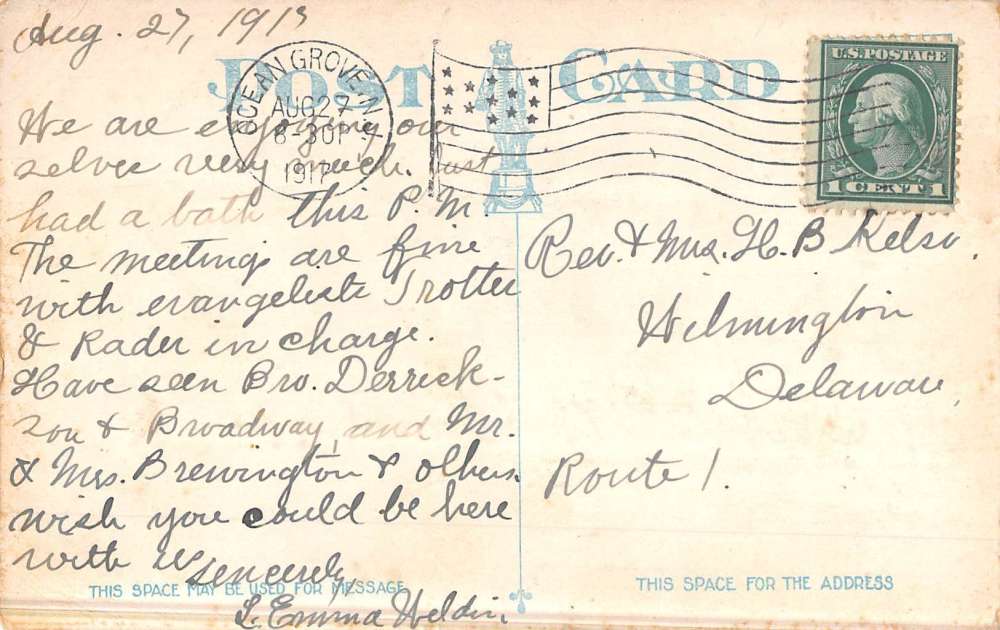 Aug. 27, 1917
POST CARD
OCEAN GROVE N.J.
AUG 27
8-30P
1917
U.S. POSTAGE
1 CENT 1
We are enjoying our
selves very much. Just
had a bath this P.M.
The meetings are fine
with evangelists Trotter
& Rader in charge.
Have seen Bro. Derrick-
son & Broadway and Mr.
& Mrs. Brewington & others.
wish you could be here
with us
Sincerely
L. Emma Weldin.
THIS SPACE MAY BE USED FOR MESSAGE
Rev. & Mrs. H. B Kelso.
Wilmington
Delaware,
Route 1.
THIS SPACE FOR THE ADDRESS